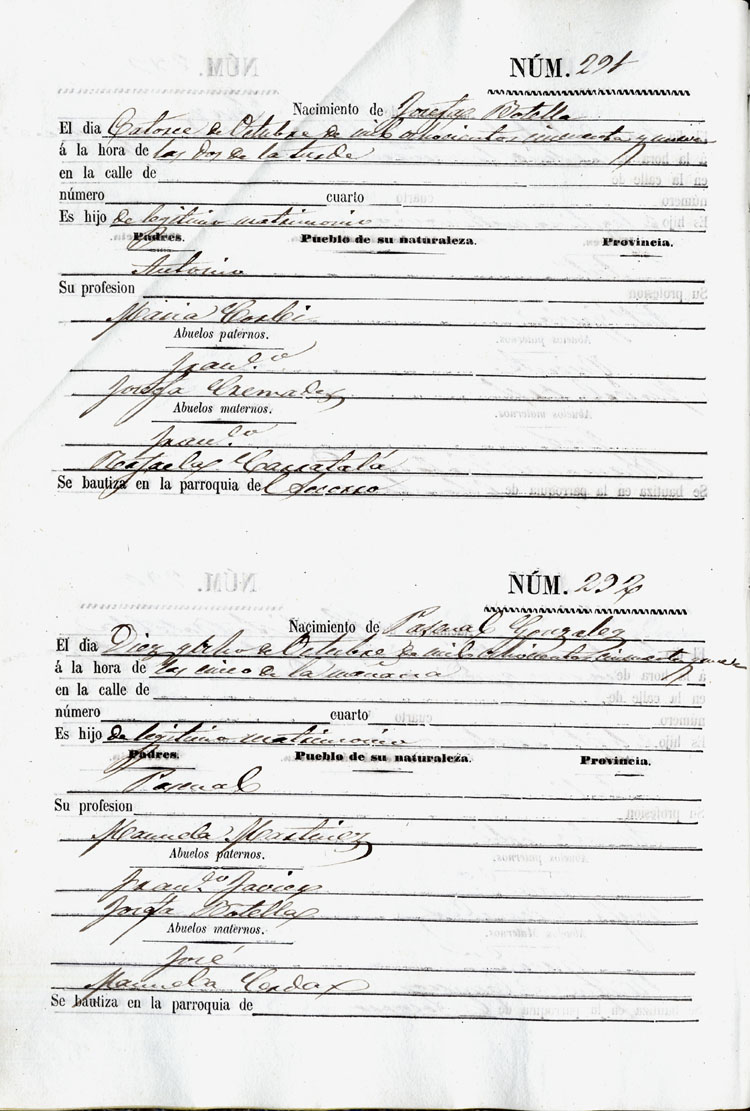 NÚM. 291
Nacimiento de Josefa Botella
El dia Catorce de Octubre de mil ochocientos cincuenta y nueve
á la hora de las dos de la tarde
en la calle de
número cuarto
Es hijo de legitimo matrimonio
Padres. Pueblo de su naturaleza. Provincia.
Antonio
Su profesion
Maria
Abuelos paternos.
Fran.co
Josefa Cremades
Abuelos maternos.
Fran.co
Rafaela Carratalá
Se bautiza en la parroquia de
NÚM. 292
Nacimiento de Pascual Gonzalez
El dia Diez y ocho de Octubre de mil ochocientos cincuenta y nueve
á la hora de las cinco de la mañana
en la calle de
número cuarto
Es hijo de legitimo matrimonio
Padres. Pueblo de su naturaleza. Provincia.
Pascual
Su profesion
Manuela Martinez
Abuelos paternos.
Fran.co Javier
Josefa Botella
Abuelos maternos.
José
Manuela Cerdá
Se bautiza en la parroquia de